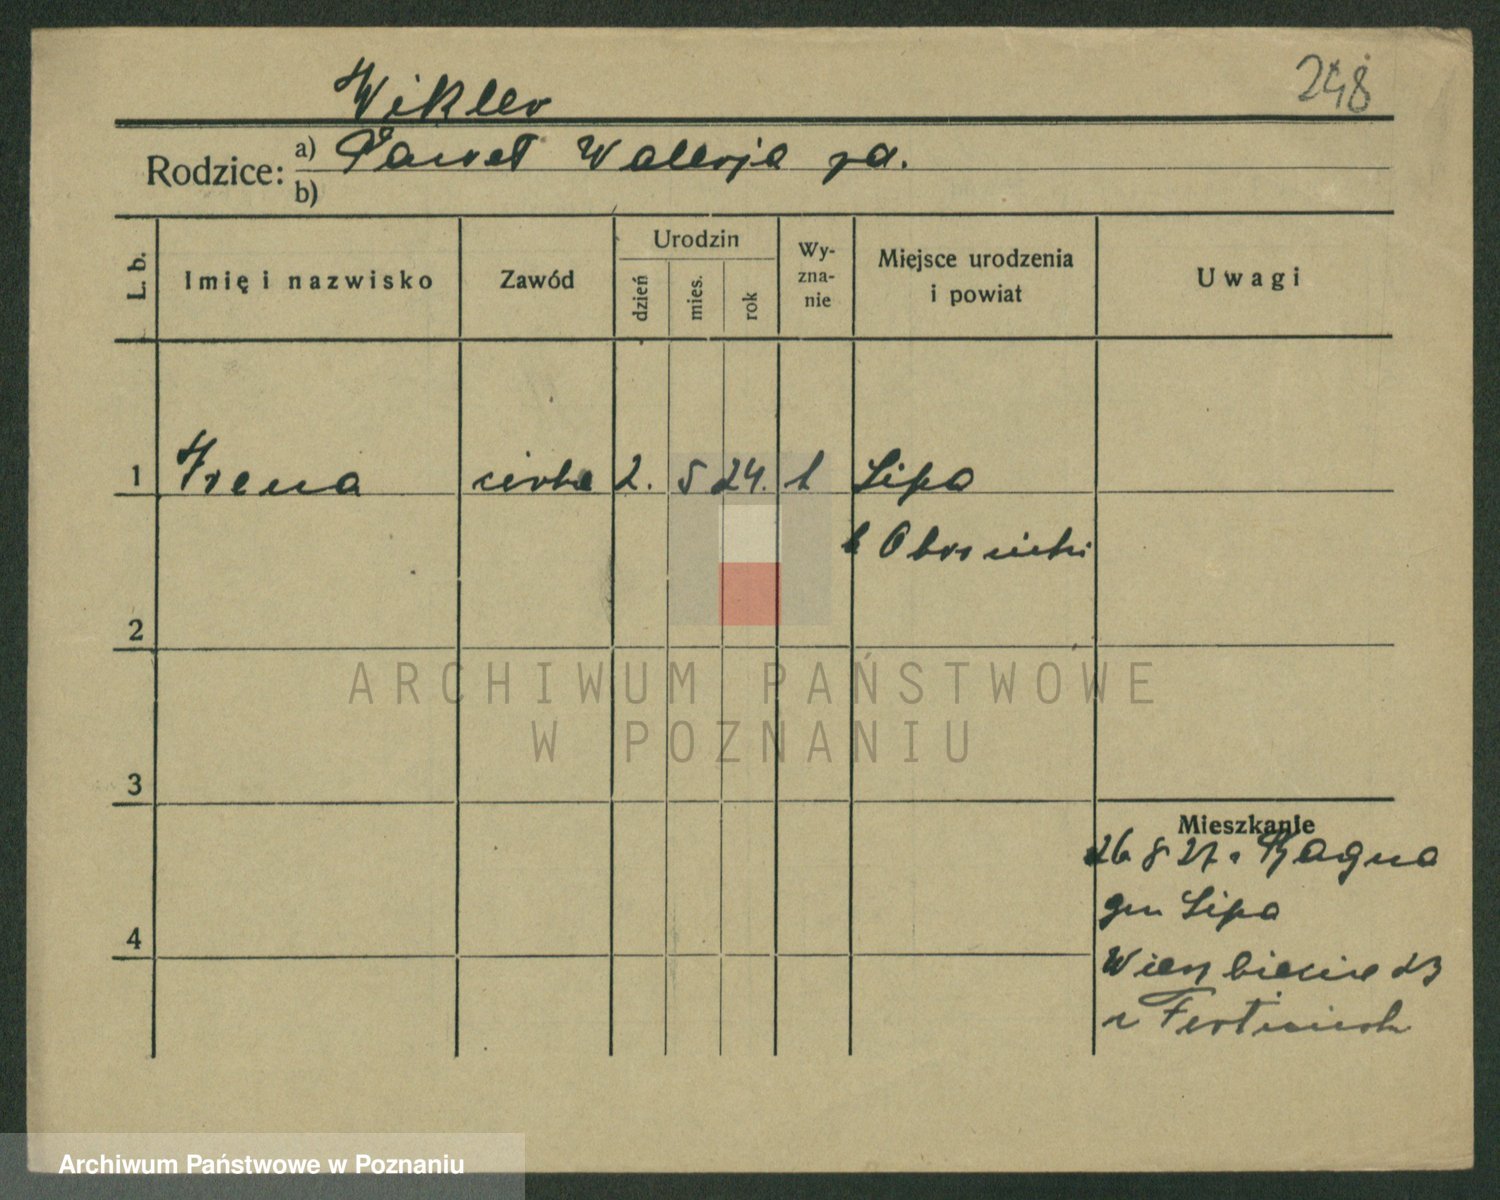 248
Wikler
Rodzice: a) Paweł Walerja
b)
L. b.
Imię i nazwisko
Zawód
Urodzin
dzień
mies.
rok
Wy-
zna-
nie
Miejsce urodzenia
i powiat
Uwagi
1 Irena córka 2. 5 24. Lipa
Oborniki
2
ARCHIWUM PAŃSTWOWE
W POZNANIU
3
Mieszkanie
26 8 27. Bagna
gm Lipa
4
23
Archiwum Państwowe w Poznaniu